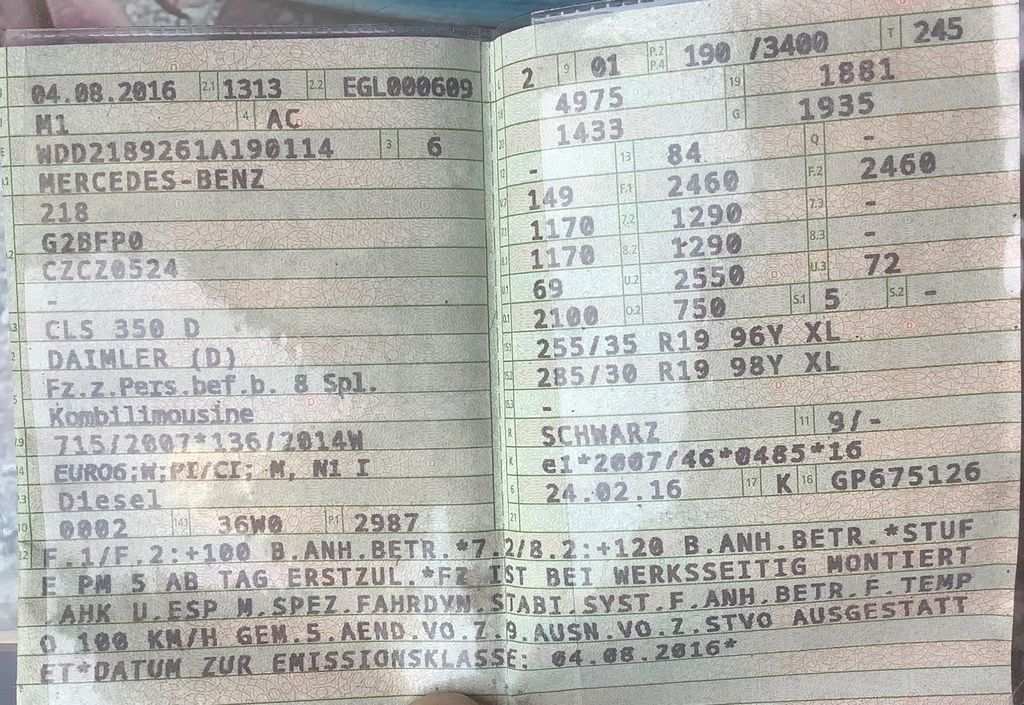 04.08.2016 2.1 1313 2.2 EGL000609
M1 4 AC
WDD2189261A190114 3 6
MERCEDES-BENZ
218
G2BFP0
CZCZ0524
-
CLS 350 D
DAIMLER (D)
Fz.z.Pers.bef.b. 8 Spl.
Kombilimousine
715/2007*136/2014W
EURO6;W;PI/CI; M, N1 I
Diesel
0002 14.1 36W0 P.1 2987
2 9 01 P.2 P.4 190 /3400 T 245
4975 19 1881
1433 G 1935
- 13 84 Q -
149 F.1 2460 F.2 2460
1170 7.2 1290 7.3 -
1170 8.2 1290 8.3 -
69 U.2 2550 U.3 72
2100 O.2 750 S.1 5 S.2 -
255/35 R19 96Y XL
285/30 R19 98Y XL
-
R SCHWARZ 11 9/-
K e1*2007/46*0485*16
6 24.02.16 17 K 16 GP675126
21
F.1/F.2:+100 B.ANH.BETR.*7.2/8.2:+120 B.ANH.BETR.*STUF
E PM 5 AB TAG ERSTZUL.*FZ IST BEI WERKSSEITIG MONTIERT
.AHK U.ESP M.SPEZ.FAHRDYN.STABI.SYST.F.ANH.BETR.F.TEMP
O 100 KM/H GEM.5.AEND.VO.Z.9.AUSN.VO.Z.STVO AUSGESTATT
ET*DATUM ZUR EMISSIONSKLASSE: 04.08.2016*